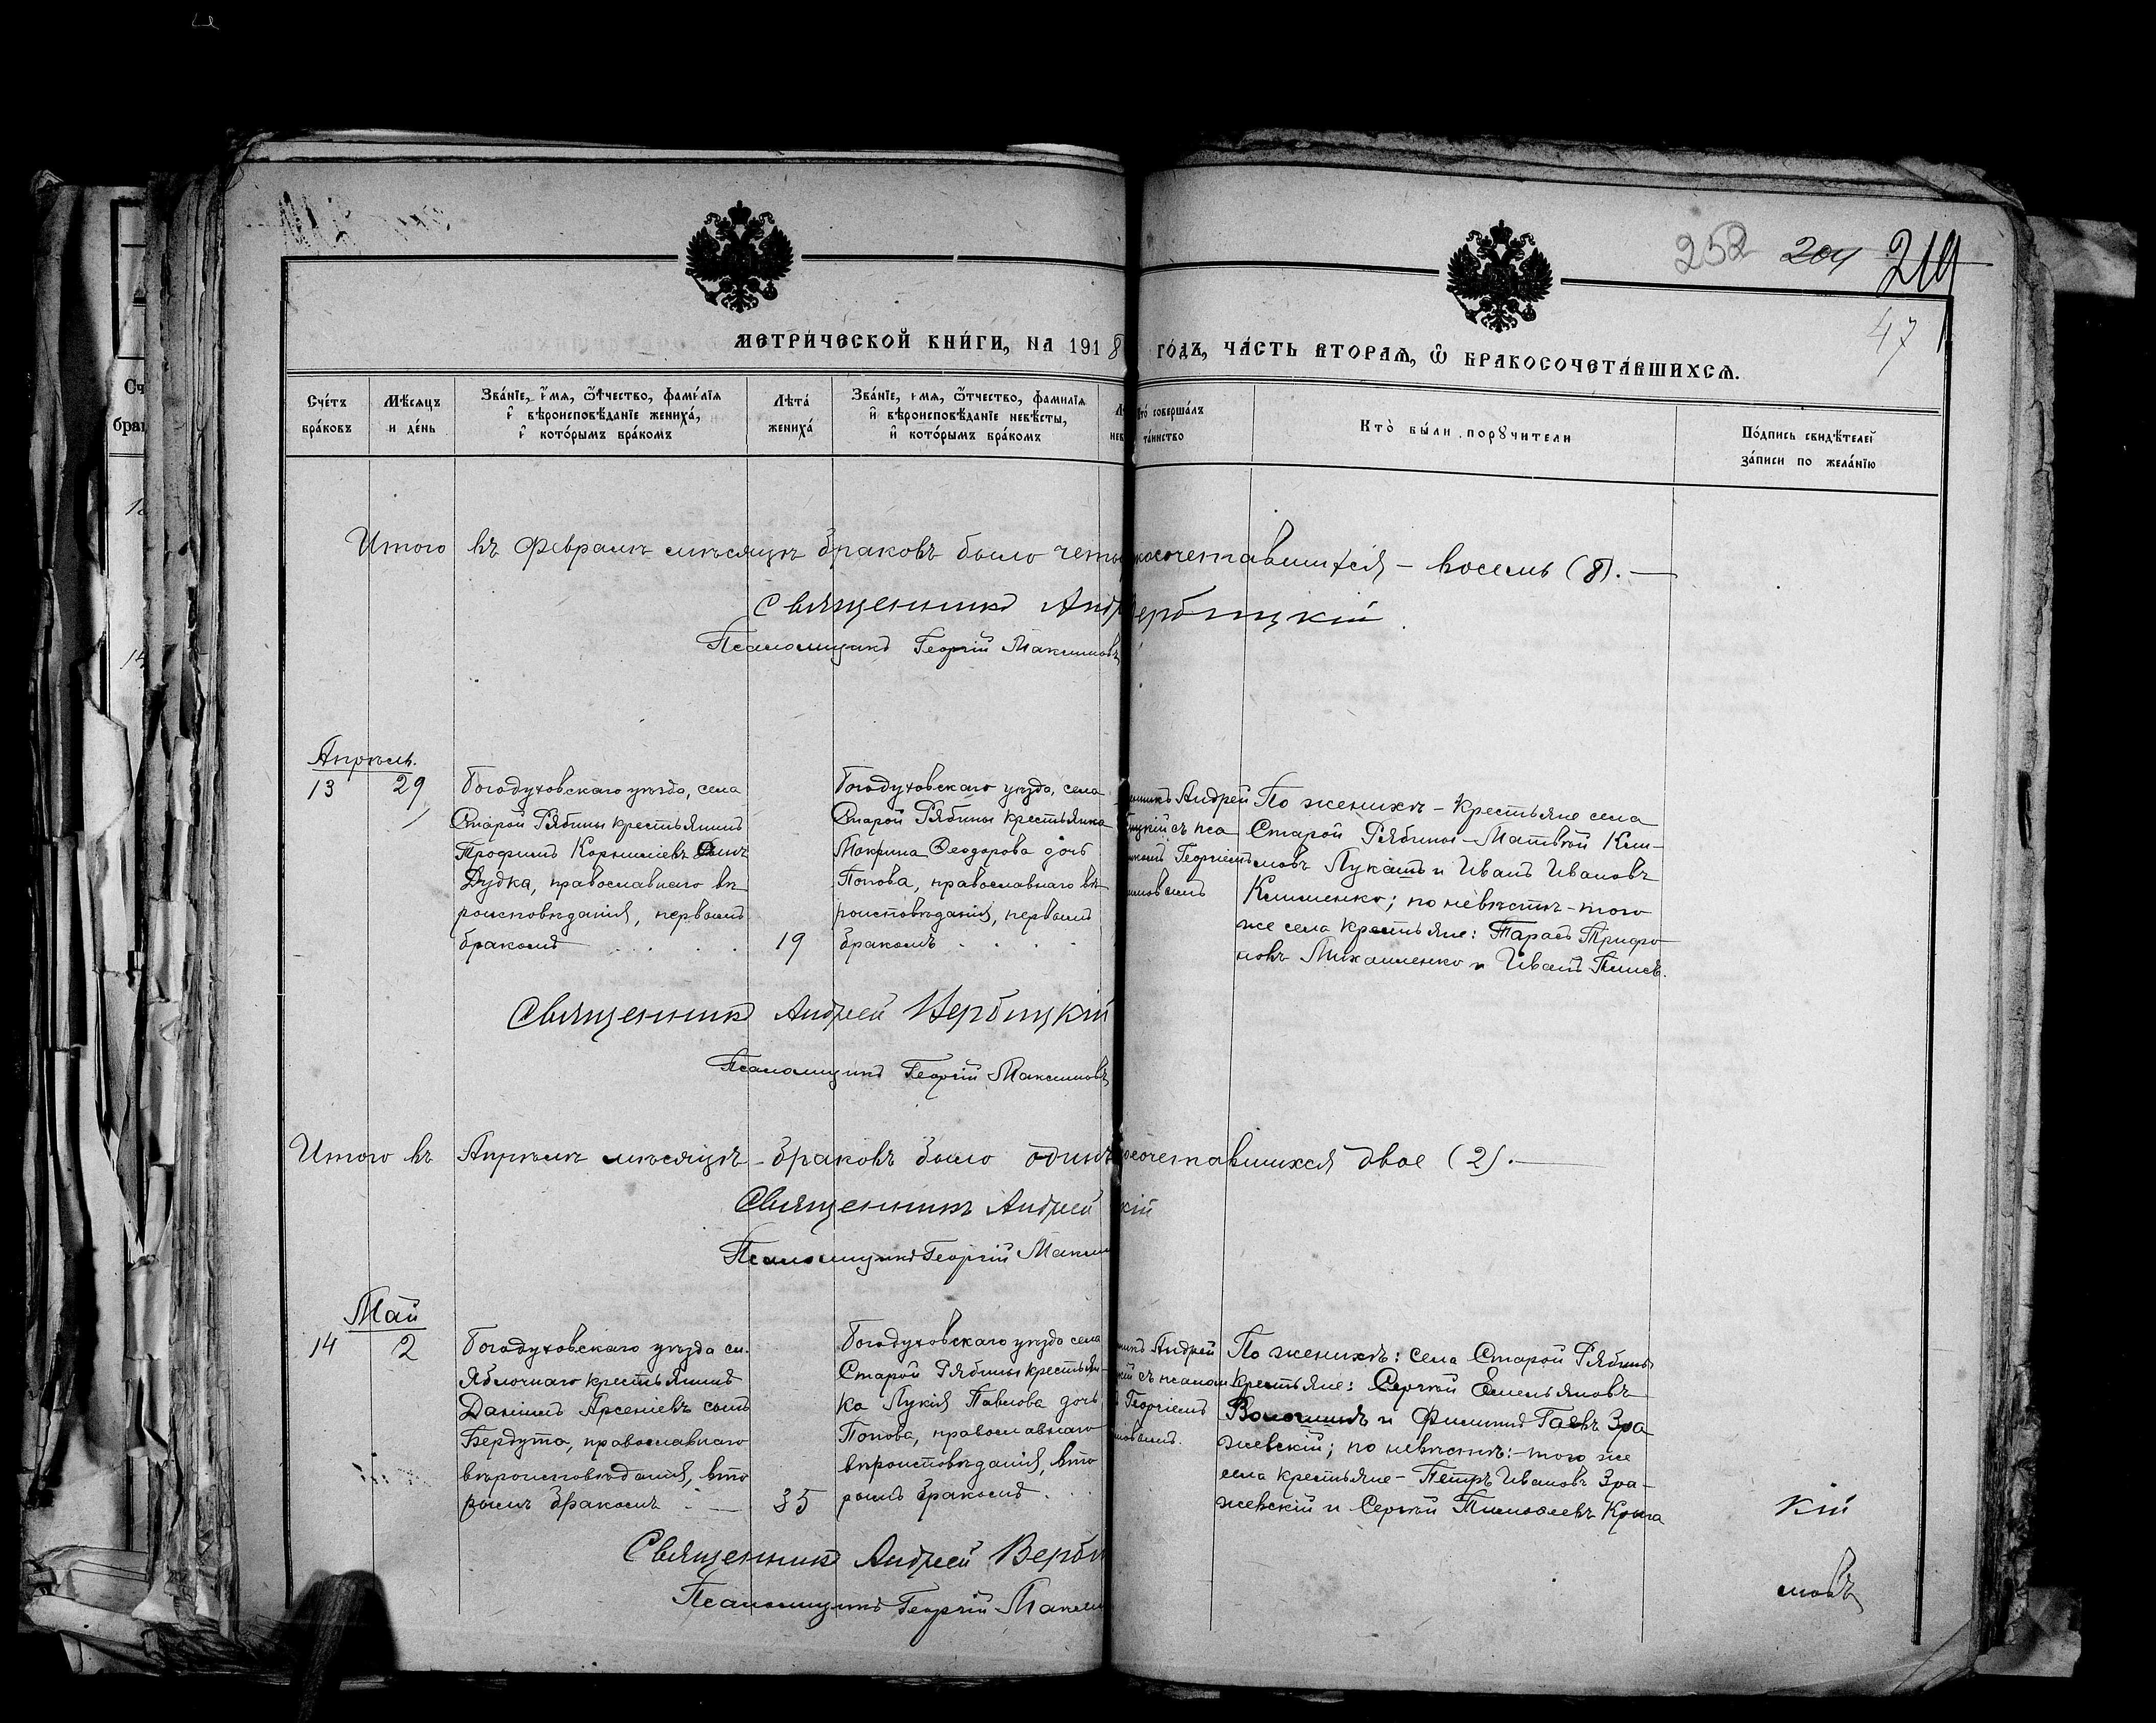 252 204 219
47
МЕТРИ́ЧЕСКОЙ КНИ́ГИ, НА 1918 ГО́ДЪ, ЧА́СТЬ ВТОРАЯ, Ѿ БРАКОСОЧЕТА́ВШИХСЯ.
Сче́тъ бра́ковъ
Мѣ́сяцъ и де́нь
Зва́нїе, и́мя, ѻ҆́тчество, фами́лїя и҆ вѣроисповѣ́данїе жениха́, и҆ кото́рымъ бра́комъ
Лѣта́ жениха́
Зва́нїе, и́мя, ѻ҆́тчество, фамилїя и҆ вѣроисповѣ́данїе невѣ́сты, и҆ кото́рымъ бра́комъ
Кто́ соверша́лъ та́инство
Кто̀ бы́ли порꙋчители
По́дпись свидѣ́телей за́писи по жела́нїю
Итого въ Февралѣ мѣсяцѣ браковъ было четы
косочетавшихся – восемь (8). —
Священникъ Андр
ербицкій
Псаломщикъ Георгій Максимовъ
Апрѣль.
13 29
Богодуховскаго уѣзда, села
Старой Рябины крестьянинъ
Трофимъ Корнилiевъ сынъ
Дудка, православнаго вѣ-
роисповѣданія, первымъ
бракомъ
19
Богодуховскаго уѣзда, села
Старой Рябины крестьянка
Макрина Ѳеодорова дочь
Попова, православнаго вѣ-
роисповѣданія, первымъ
бракомъ
Андрей
цкій съ пса
Георгіемъ
мовымъ
По женихѣ – крестьяне села
Старой Рябины – Матвѣй Кли-
мовъ Лукашъ и Иванъ Ивановъ
Клименко; по невѣстѣ – того
же села крестьяне: Тарасъ Трифо-
новъ Михайленко и Иванъ
Священникъ Андрей Вербицкій
Псаломщикъ Георгій Максимовъ
Итого въ Апрѣлѣ мѣсяцѣ – браковъ было одинъ
косочетавшихся двое (2). —
Священникъ Андрей
кій
Псаломщикъ Георгій Макси
Май
14 2
Богодуховскаго уѣзда сл.
Яблочнаго крестьянинъ
Даніилъ Арсеніевъ сынъ
Бердута, православнаго
вѣроисповѣданія, вто
рымъ бракомъ
35
Богодуховскаго уѣзда села
Старой Рябины крестьян-
ка Лукія Павлова дочь
Попова, православнаго
вѣроисповѣданія, вто
рымъ бракомъ
Андрей
кій съ псалом
Георгіемъ
мовымъ.
По женихѣ: села Старой Рябины
крестьяне: Сергѣй Емельяновъ
Волошинъ и Филиппъ Зра
жевскій; по невѣстѣ: – того же
села крестьяне – Петръ Ивановъ Зра-
жевскій и Сергѣй Тимоѳеевъ
Священникъ Андрей Верби
кій
Псаломщикъ Георгій Макси
мовъ